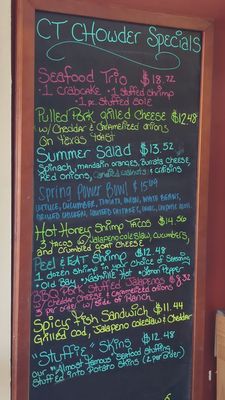 CT CHOWDER Specials
Seafood Trio $18.72
• 1 crabcake • 1 stuffed shrimp
• 1 pc. Stuffed Sole
Pulled Pork Grilled Cheese $12.48
w/ Cheddar & Caramelized onions
On Texas Toast
Summer Salad $13.52
Spinach, mandarin oranges, Burrata Cheese,
Red Onions, Candied walnuts & Craisins
Spring Power Bowl $15.09
Lettuce, Cucumber, Tomato, Onion, White Beans,
Grilled Chicken,
Hot Honey Shrimp Tacos $14.56
3 tacos w/ Jalapeno coleslaw, cucumbers,
and crumbled goat cheese
Peel & EAT Shrimp $12.48
1 dozen shrimp in your choice of Seasoning
• Old Bay • Nashville Hot • Lemon Pepper
BBQ Pork Stuffed Jalapenos $8.32
w/ Cheddar Cheese & caramelized onions
3 per order w/ side of Ranch
Spicy Fish Sandwich $11.44
Grilled cod, Jalapeno coleslaw & cheddar
"Stuffie" Skins $12.48
our "Almost Famous" Seafood Stuffing
Stuffed into Potato Skins (2 per order)